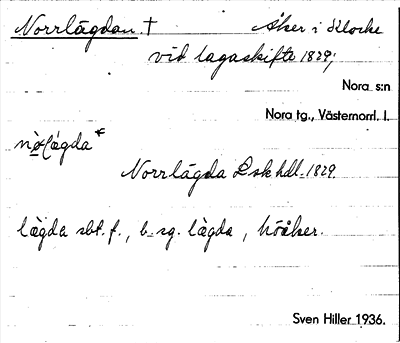 Norrlägdan. † Åker i Klocke
vid lagaskifte 1829;
Nora s:n
Nora tg., Västernorrl. l.
Norrlägda Lskhdl. 1829.
lägda sbt. f., b. sg. lägda, höåker.
Sven Hiller 1936.